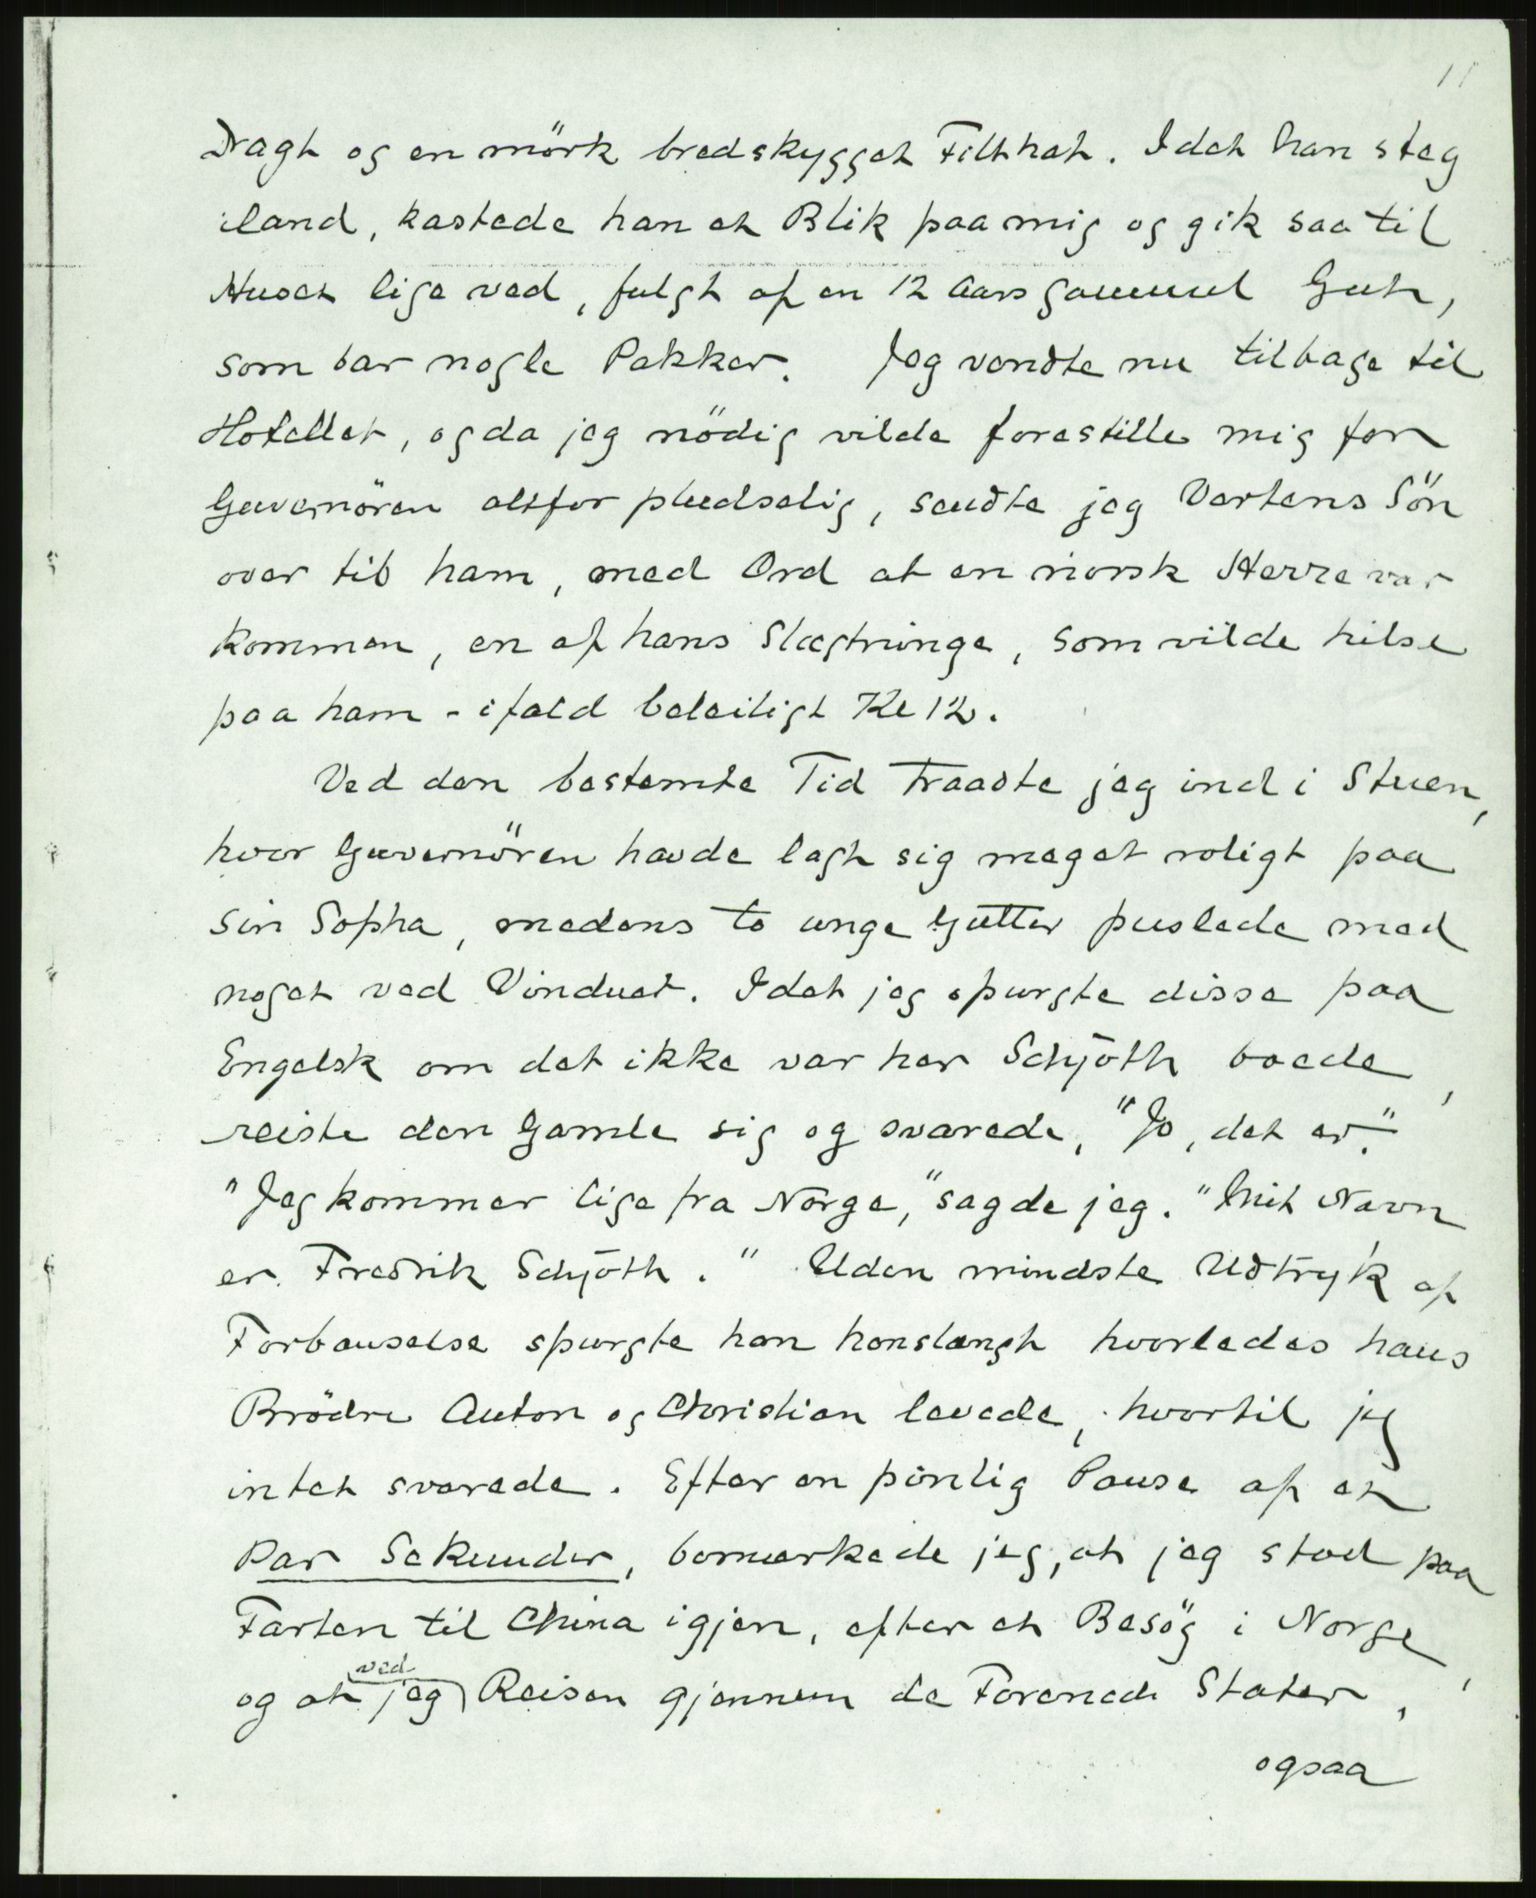 11
Dragt og en mörk bredskygget Filthat. Idet han steg
iland, kastede han et Blik paa mig og gik saa til
Huset lige ved, fulgt af en 12 Aars gammel Gut,
som bar nogle Pakker. Jeg vendte nu tilbage til
Hotellet, og da jeg nödig vilde forestille mig for
Guvernören altfor pludselig, sendte jeg Vertens Sön
over til ham, med Ord at en norsk Herre var
kommen, en af hans Slægtninge, som vilde hilse
paa ham - ifald beleiligt Kl 12.
Ved den bestemte Tid traadte jeg ind i Stuen,
hvor Guvernören havde lagt sig meget roligt paa
sin Sopha, medens to unge Gutter puslede med
noget ved Vinduet. Idet jeg spurgte disse paa
Engelsk om det ikke var her Schjöth boede,
reiste den Gamle sig og svarede, "Jo, det er."
"Jeg kommer lige fra Norge," sagde jeg. "Mit Navn
er Fredrik Schjöth." Uden mindste Udtryk af
Forbauselse spurgte han henslængt hvorledes hans
Brödre Anton og Christian levede, hvortil jeg
intet svarede. Efter en pinlig Pause af et
Par Sekunder, bemærkede jeg, at jeg stod paa
Farten til China igjen, efter et Besög i Norge,
ved
og at jeg Reisen gjennem de Forenede Stater,
ogsaa